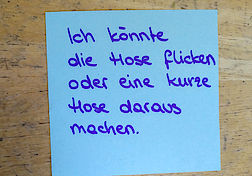 Ich könnte
die Hose flicken
oder eine kurze
Hose daraus
machen.